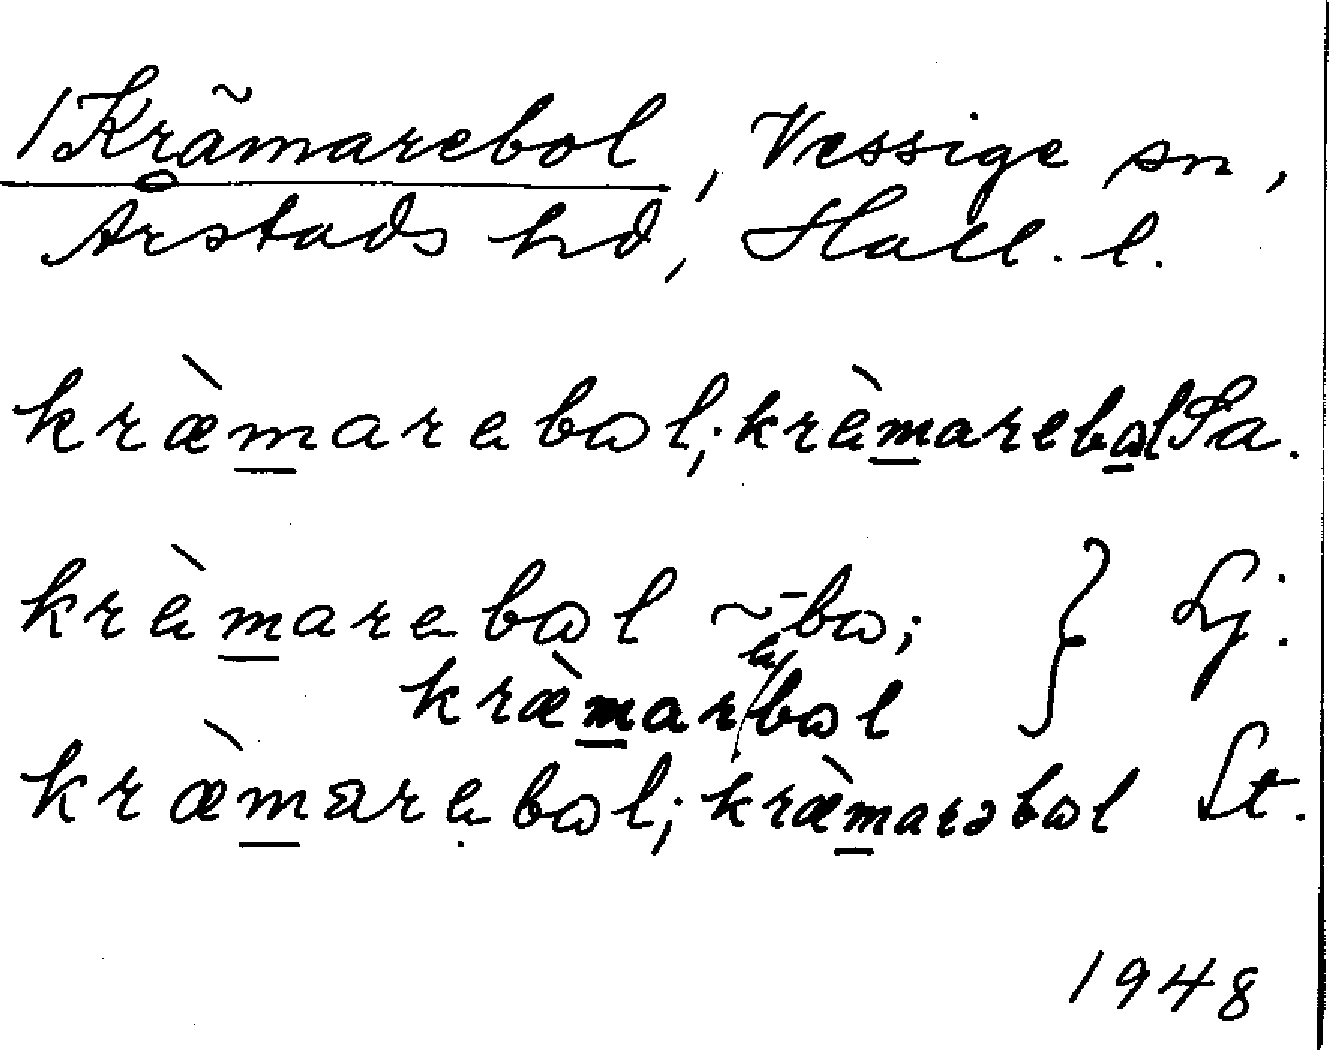 / Krämarebol, Vessige sn,
Årstads hd, Hall. l.
kræ̀marebωl; krèmarebωl Sa.
krèmarebωl ~ -bω; } Lj.
kræ̀marebωl
kræ̀marebωl; kræ̀marəbωl St.
1948